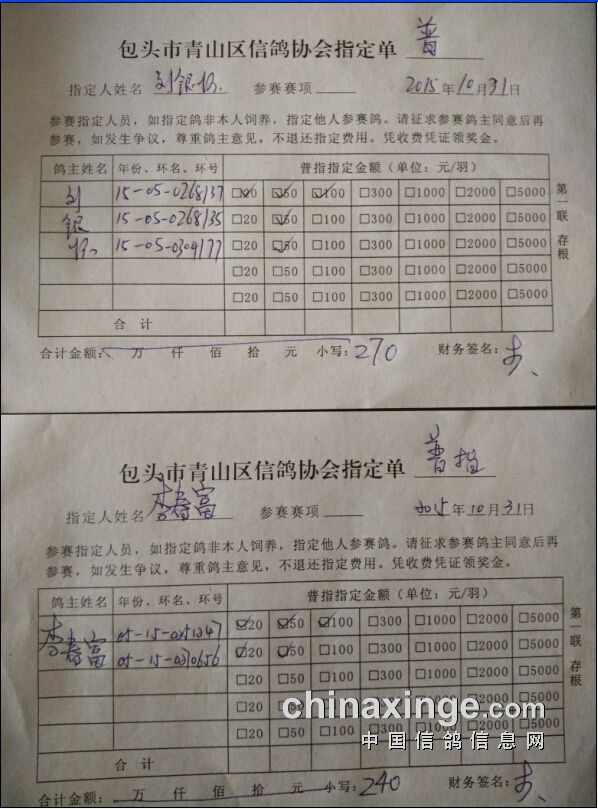 包头市青山区信鸽协会指定单 普
指定人姓名 刘银 参赛赛项 2015年10月31日
参赛指定人员，如指定鸽非本人饲养，指定他人参赛鸽。请征求参赛鸽主同意后再
参赛，如发生争议，尊重鸽主意见，不退还指定费用。凭收费凭证领奖金。
鸽主姓名 年份、环名、环号 普指指定金额（单位：元/羽）
刘 15-05-0268137 □20 □50 □100 □300 □1000 □2000 □5000
银 15-05-0268135 □20 □50 □100 □300 □1000 □2000 □5000
15-05-0304177 □20 □50 □100 □300 □1000 □2000 □5000
□20 □50 □100 □300 □1000 □2000 □5000
□20 □50 □100 □300 □1000 □2000 □5000
合 计
第一联 存根
合计金额： 万 仟 佰 拾 元 小写：270 财务签名：
包头市青山区信鸽协会指定单 普指
指定人姓名 李春富 参赛赛项 2015年10月31日
参赛指定人员，如指定鸽非本人饲养，指定他人参赛鸽。请征求参赛鸽主同意后再
参赛，如发生争议，尊重鸽主意见，不退还指定费用。凭收费凭证领奖金。
鸽主姓名 年份、环名、环号 普指指定金额（单位：元/羽）
李 05-15-0351347 □20 □50 □100 □300 □1000 □2000 □5000
春富 05-15-0310656 □20 □50 □100 □300 □1000 □2000 □5000
□20 □50 □100 □300 □1000 □2000 □5000
□20 □50 □100 □300 □1000 □2000 □5000
□20 □50 □100 □300 □1000 □2000 □5000
合 计
第一联 存根
合计金额： 万 仟 佰 拾 元 小写：240 财务签名：
chinaxinge.com
中国信鸽信息网